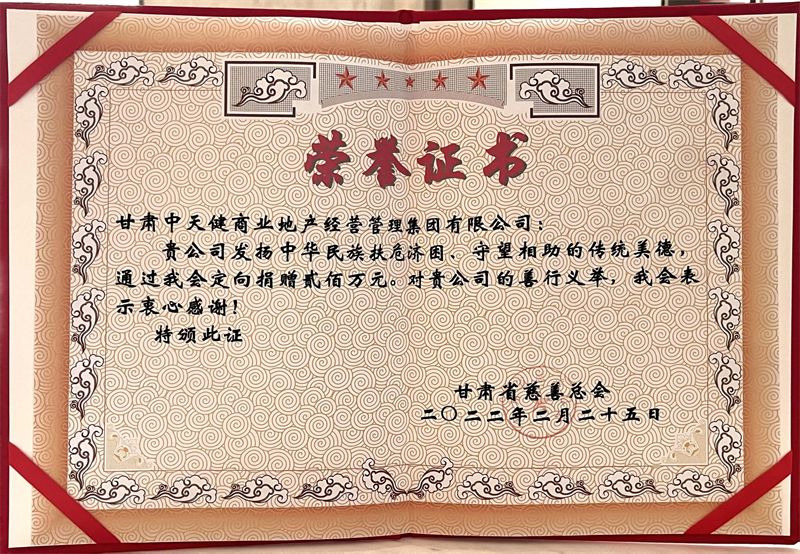 荣誉证书
甘肃中天健商业地产经营管理集团有限公司：
贵公司发扬中华民族扶危济困、守望相助的传统美德，
通过我会定向捐赠贰佰万元。对贵公司的善行义举，我会表
示衷心感谢！
特颁此证
甘肃省慈善总会
二〇二二年二月二十五日